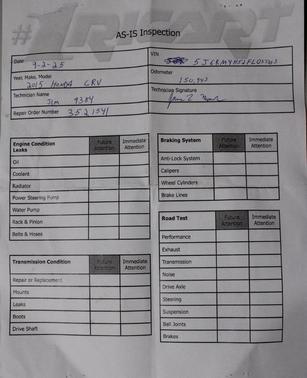 #1RIGCART
AS-IS Inspection
Date 9-2-25
VIN
Year, Make, Model
2015 HONDA CRV
Odometer
150,943
Technician Name
Jim 9354
Technician Signature
Repair Order Number 3521541
Engine Condition Future Attention Immediate Attention
Leaks
Oil
Coolant
Radiator
Power Steering Pump
Water Pump
Rack & Pinion
Belts & Hoses
Braking System Future Attention Immediate Attention
Anti-Lock System
Calipers
Wheel Cylinders
Brake Lines
Road Test Future Attention Immediate Attention
Performance
Exhaust
Transmission
Noise
Drive Axle
Steering
Suspension
Ball Joints
Brakes
Transmission Condition Future Attention Immediate Attention
Repair or Replacement
Mounts
Leaks
Boots
Drive Shaft